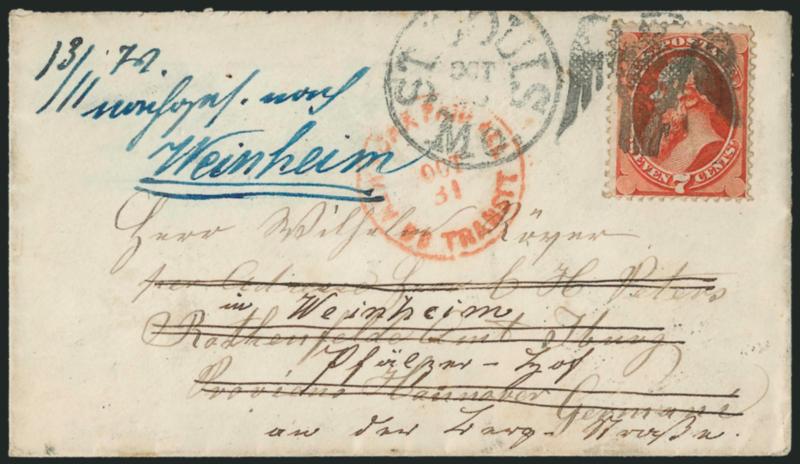 13/11 72.
nachges. nach
Weinheim
ST. LOUIS
OCT
MO.
NEW YORK
OCT
31
PAID TRANSIT
U.S. POSTAGE
SEVEN 7 CENTS
Herr Wilhelm Röver
per Adresse Herr C H Peters
in Weinheim
Rothenfelde Amt Iburg
Pfälzer-Hof
Provinz Hannover
Germani
an der Berg-Straße.